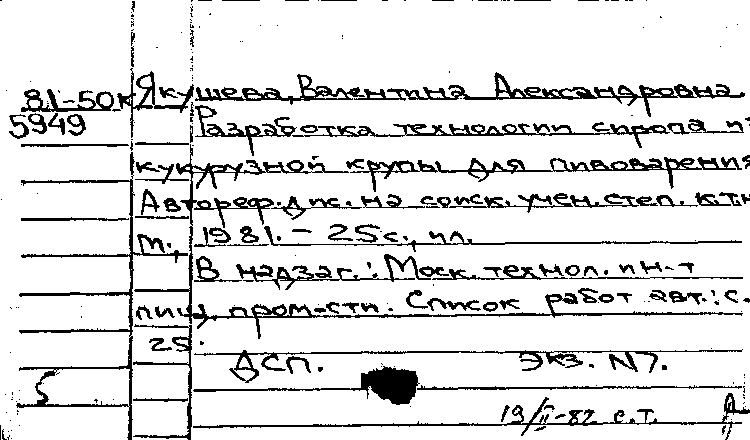 81-50к Якушева, Валентина Александровна
5949 Разработка технологии сиропа из
кукурузной крупы для пивоварения
Автореф. дис. на соиск. учен. степ. к.т.н
М., 1981. - 25с., ил.
В надзаг.: Моск. технол. ин-т
пищ. пром-сти. Список работ авт.: с.
25.
ДСП. Экз. N7.
5
19/II-82 с.т.